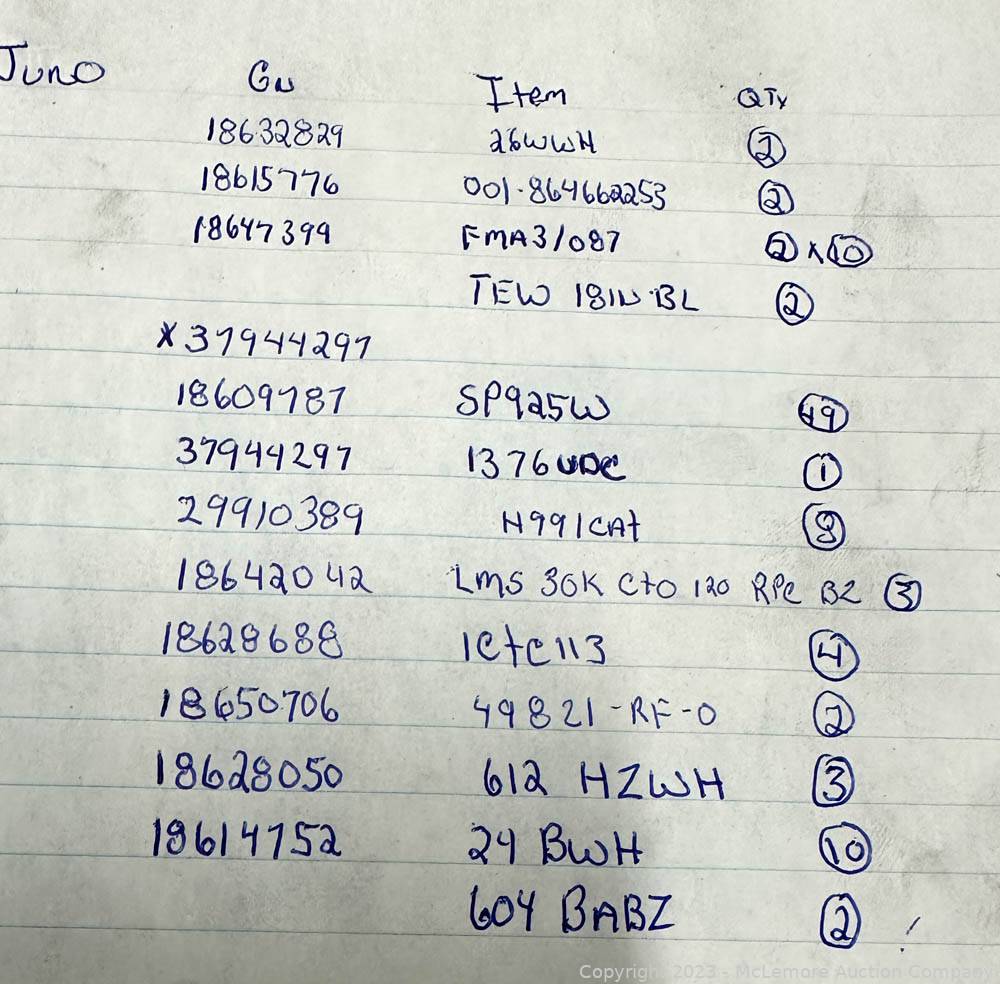 Juno GN Item QTY
18632829 26WWH 2
18615776 001-864662253 2
18647399 FMA31087 2 x 10
TEW 18IN BL 2
x 37944297
18609787 SP925W 49
37944297 1376 UDC 1
29910389 H991CAt 8
18642042 Lms 30K Cto 120 RPC BZ 3
18628688 ICtC113 4
18650706 49821-RF-0 2
18628050 612 HZWH 3
18614752 24 BWH 10
604 BABZ 2
Copyright 2023 - McLemore Auction Company